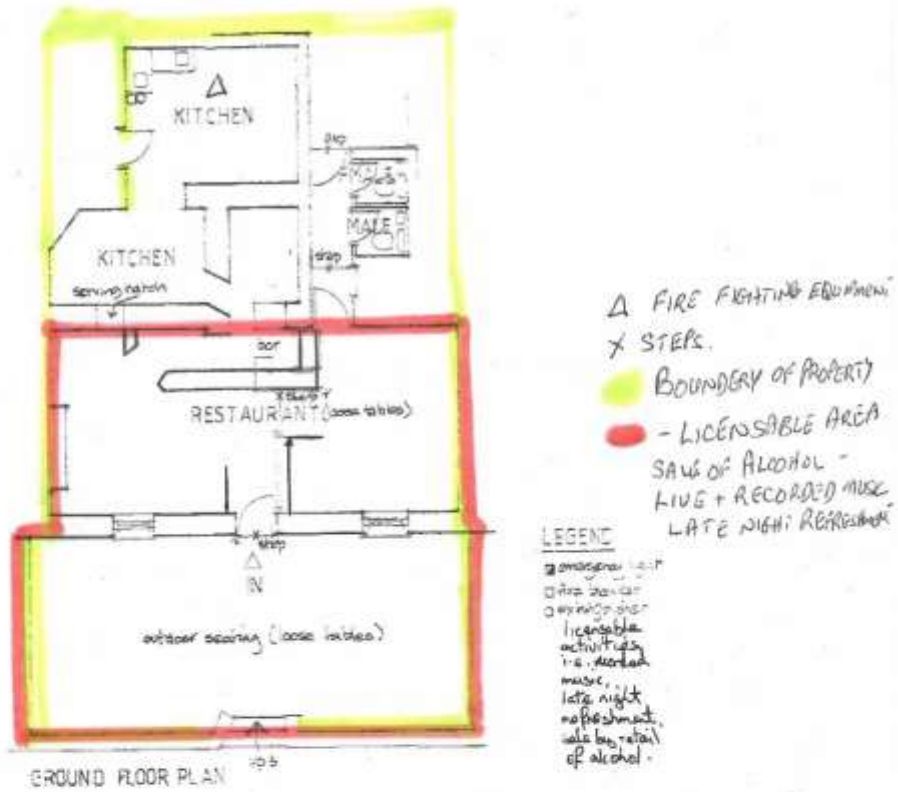 KITCHEN
step
MALE
KITCHEN
step
serving hatch
RESTAURANT (loose tables)
step
IN
outdoor seating (loose tables)
GROUND FLOOR PLAN
△ FIRE FIGHTING EQUIPMENT
X STEPS.
BOUNDERY OF PROPERTY
- LICENSABLE AREA
SALE OF ALCOHOL -
LIVE + RECORDED MUSIC
LATE NIGHT REFRESHMENT
LEGEND
licensable
activities
i.e. recorded
music,
late night
refreshment,
sale by retail
of alcohol.